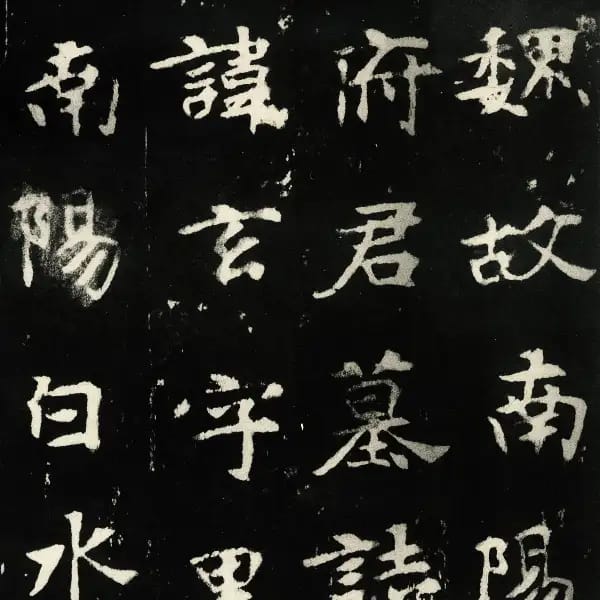 魏故南陽
府君墓誌
諱玄字黑
南陽白水